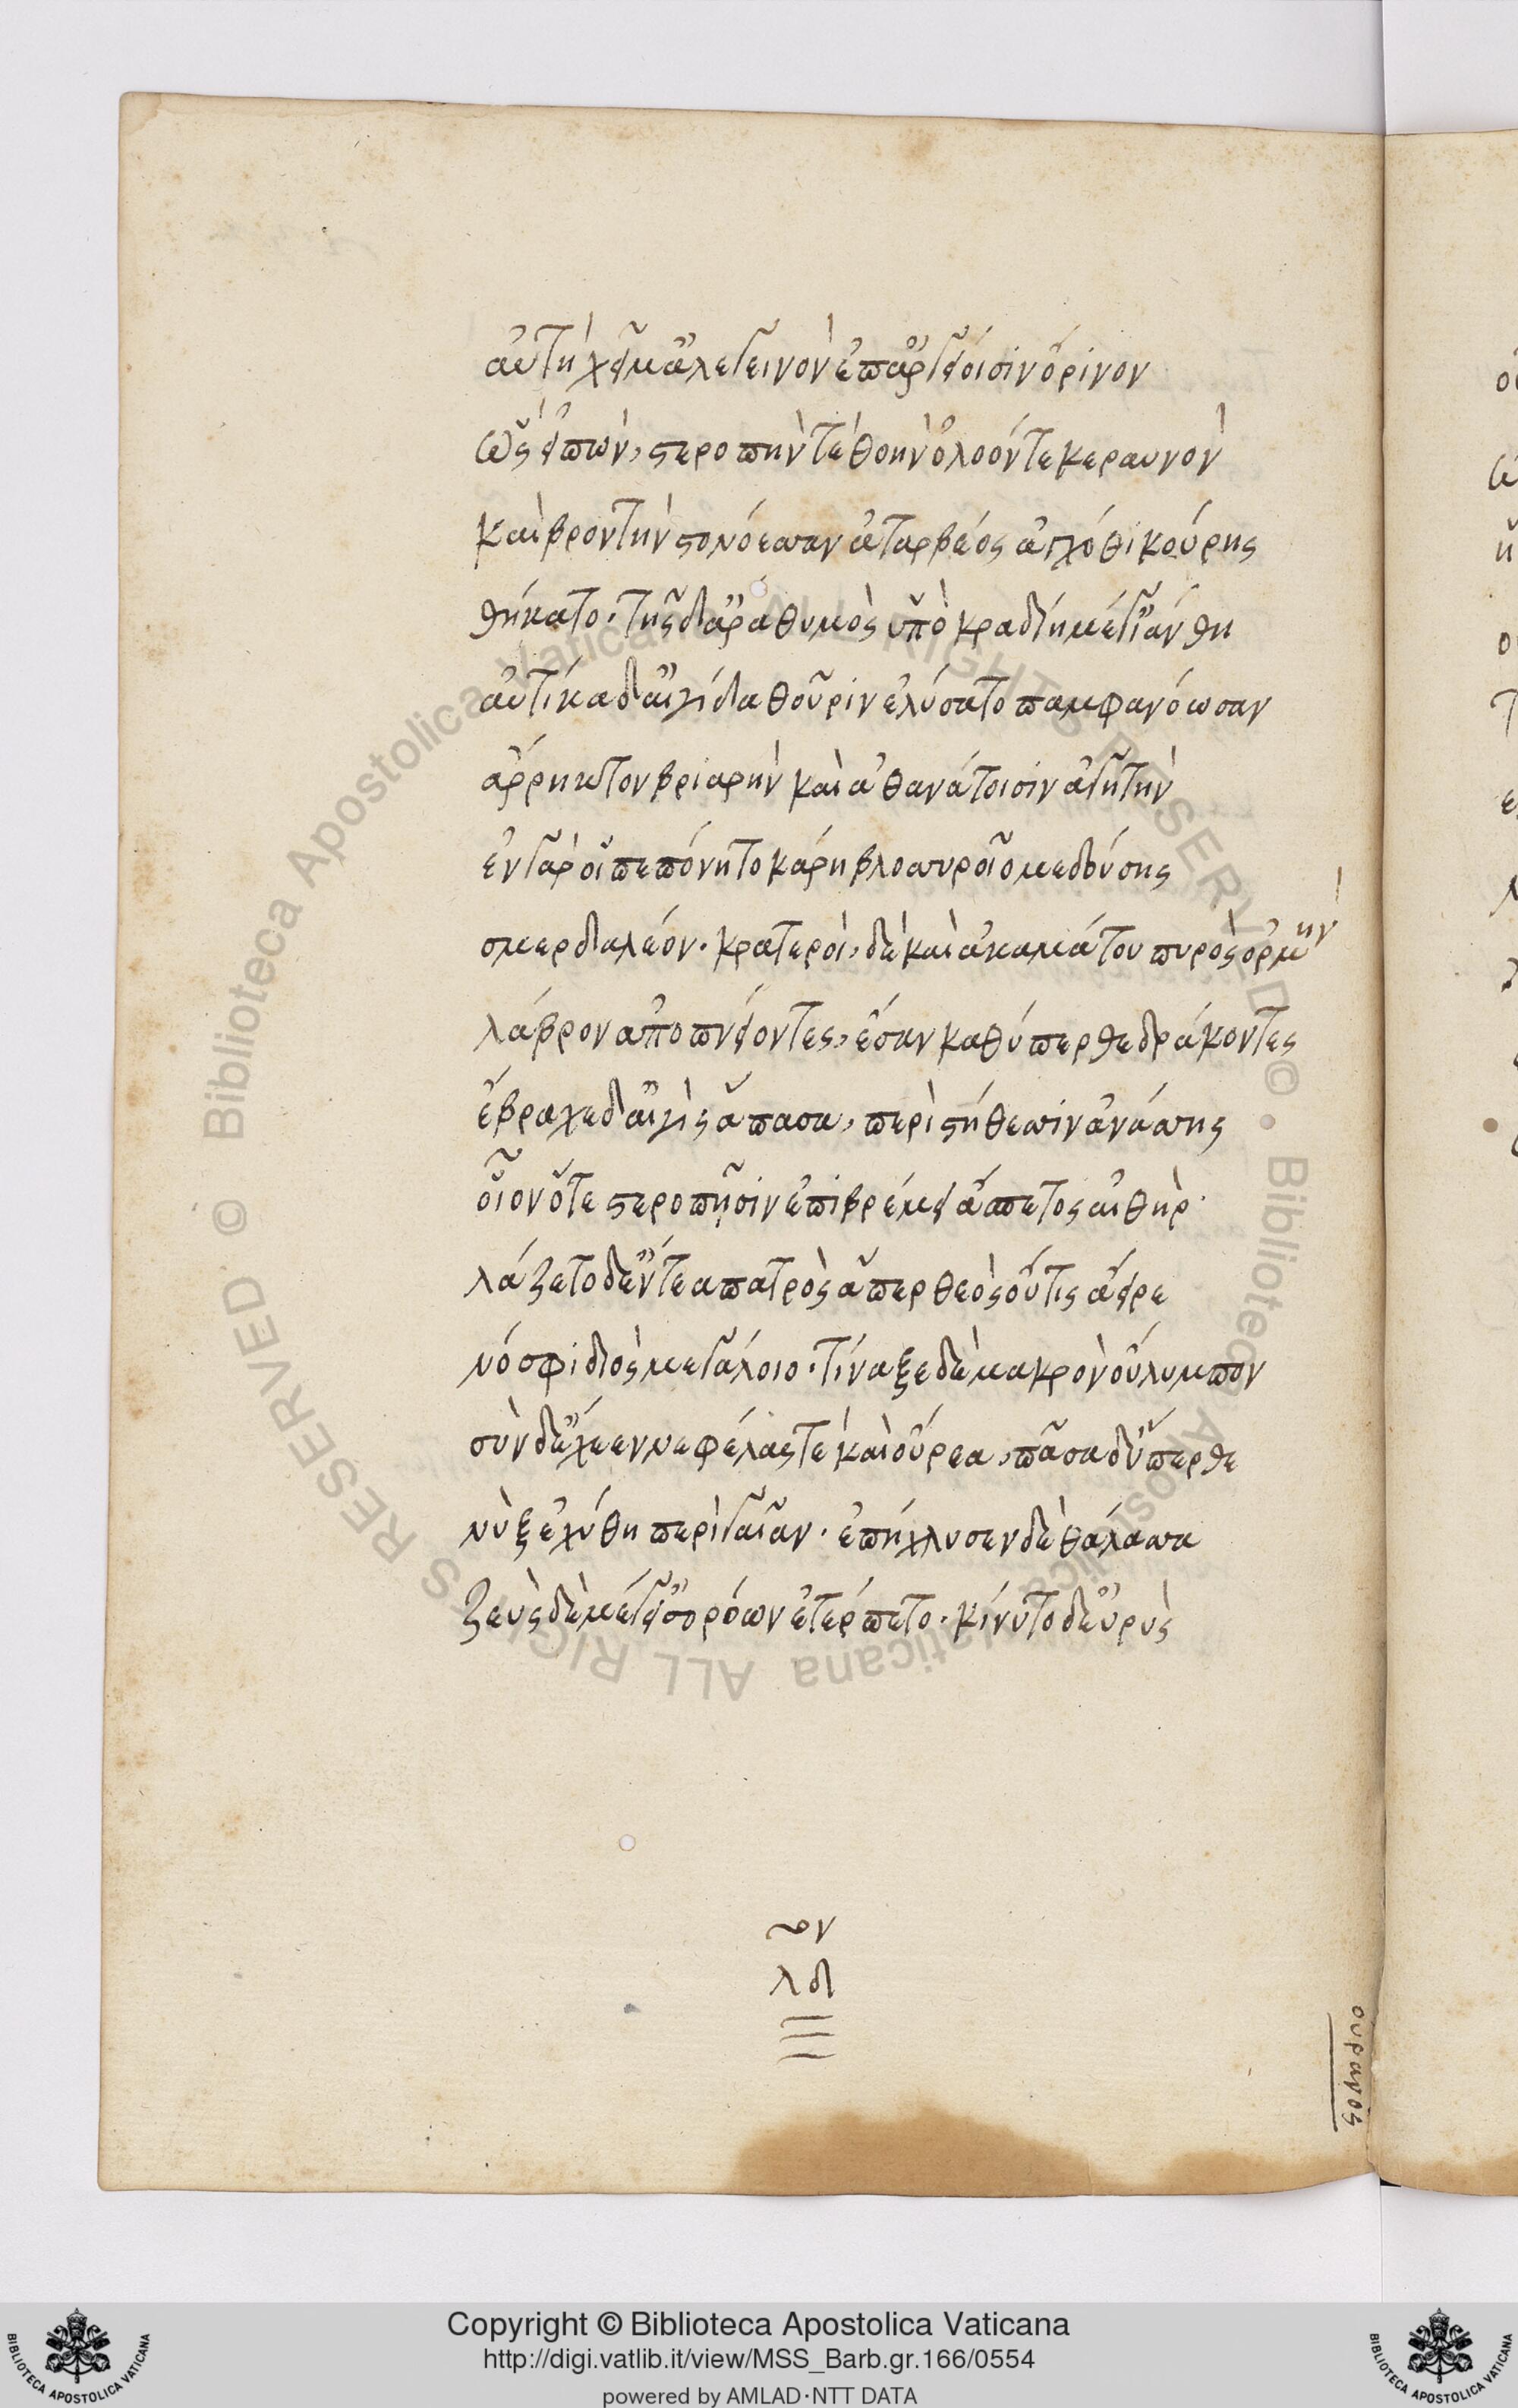 αὐτὴ χεῖμ' ἀλεγεινὸν ἐπ' ἀργείοισιν ὄρινον
ὣς εἰπὼν, στεροπήν τε θοὴν ὀλοόν τε κεραυνὸν
καὶ βροντὴν στονόεσσαν ἀταρβέος ἀγχόθι κούρης
θήκατο. τῆς δ' ἄρα θυμὸς ὑπὸ κραδίη μέγ' ἰάνθη
αὐτίκα δ' αἰγίδα θοῦριν ἐλύσατο παμφανόωσαν
ἄρρηκτον βριαρὴν καὶ ἀθανάτοισιν ἀγητὴν
ἐν γάρ οἱ πεπόνητο κάρη βλοσυροῖο μεδούσης
σμερδαλέον. κρατεροὶ, δὲ καὶ ἀκαμάτου πυρὸς ὁρμὴν
λάβρον ἀποπνείοντες, ἔσαν καθύπερθε δράκοντες
ἔβραχε δ' αἰγὶς ἅπασα, περὶ στήθεσσιν ἀνάσσης
οἷον ὅτε στεροπῇσιν ἐπιβρέμει ἄσπετος αἰθήρ.
λάζετο δ' ἔντεα πατρὸς ἅπερ θεὸς οὔτις ἄειρε
νόσφι διὸς μεγάλοιο. τίναξε δὲ μακρὸν οὔλυμπον
σὺν δ' ἔχεεν νεφέλας τε καὶ οὔρεα, πᾶσα δ' ὕπερθε
νὺξ ἐχύθη περὶ γαῖαν. ἐπήχλυσεν δὲ θάλασσα
ζεὺς δὲ μέγ' εἰσορόων ἐτέρπετο. κίνυτο δ' εὐρὺς
λδ
οὐρανός
Copyright © Biblioteca Apostolica Vaticana
http://digi.vatlib.it/view/MSS_Barb.gr.166/0554
powered by AMLAD·NTT DATA